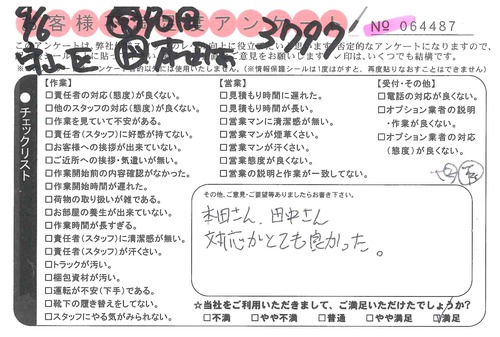 お客様満足度アンケート
№ 064487
9/6
3797
このアンケートは、弊社
【作業】
□責任者の対応(態度)が良くない。
□他のスタッフの対応(態度)が良くない。
□作業を見ていて不安がある。
□責任者(スタッフ)に好感が持てない。
□お客様への挨拶が出来ていない。
□ご近所への挨拶・気遣いが無い。
□作業開始前の内容確認がなかった。
□作業開始時間が遅れた。
□荷物の取り扱いが雑である。
□お部屋の養生が出来ていない。
□作業時間が長すぎる。
□責任者(スタッフ)に清潔感が無い。
□責任者(スタッフ)が汗くさい。
□トラックが汚い。
□梱包資材が汚い。
□運転が不安(下手)である。
□靴下の履き替えをしてない。
□スタッフにやる気がみられない。
【営業】
□見積もり時間に遅れた。
□見積もり時間が長い。
□営業マンに清潔感が無い。
□営業マンが煙草くさい。
□営業マンが汗くさい。
□営業態度が良くない。
□営業の説明と作業が一致してない。
【受付・その他】
□電話の対応が良くない。
□オプション業者の説明
・作業が良くない。
□オプション業者の対応
(態度)が良くない。
チェックリスト
その他、ご意見・ご要望等ありましたらお書き下さい。
本田さん、田中さん
対応がとても良かった。
☆当社をご利用いただきまして、ご満足いただけたでしょうか?
□不満 □やや不満 □普通 □やや満足 □満足